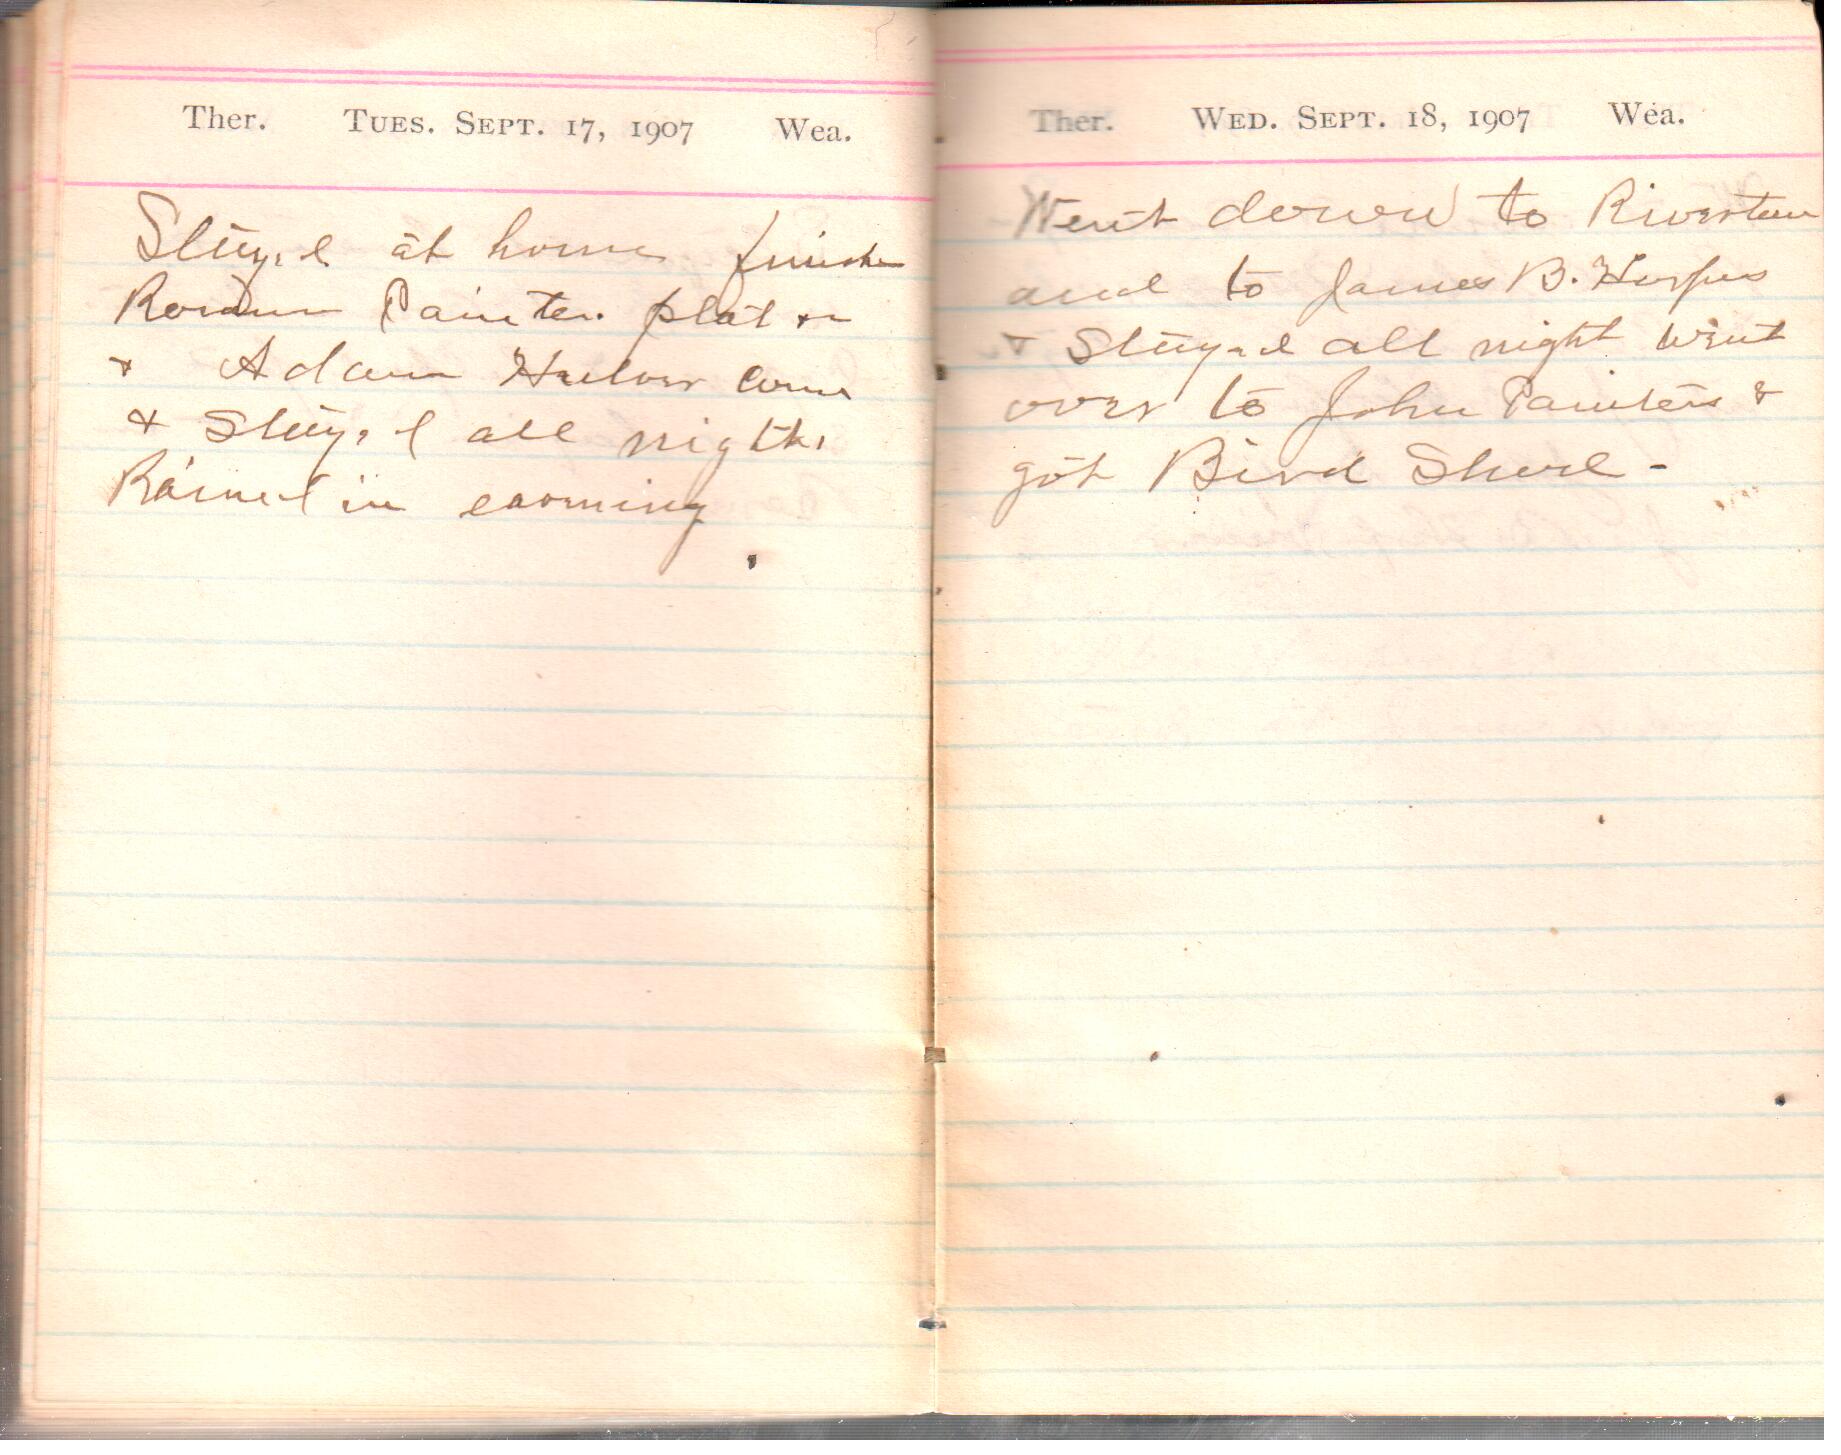 Ther. Tues. Sept. 17, 1907 Wea.
Stayed at home finishe
Painter plat
& Adam Hulver came
& Stayed all night.
Rained in eavning
Ther. Wed. Sept. 18, 1907 Wea.
Went down to Riverton
and to James B.
& Stayed all night went
over to John Painters &
got Bird